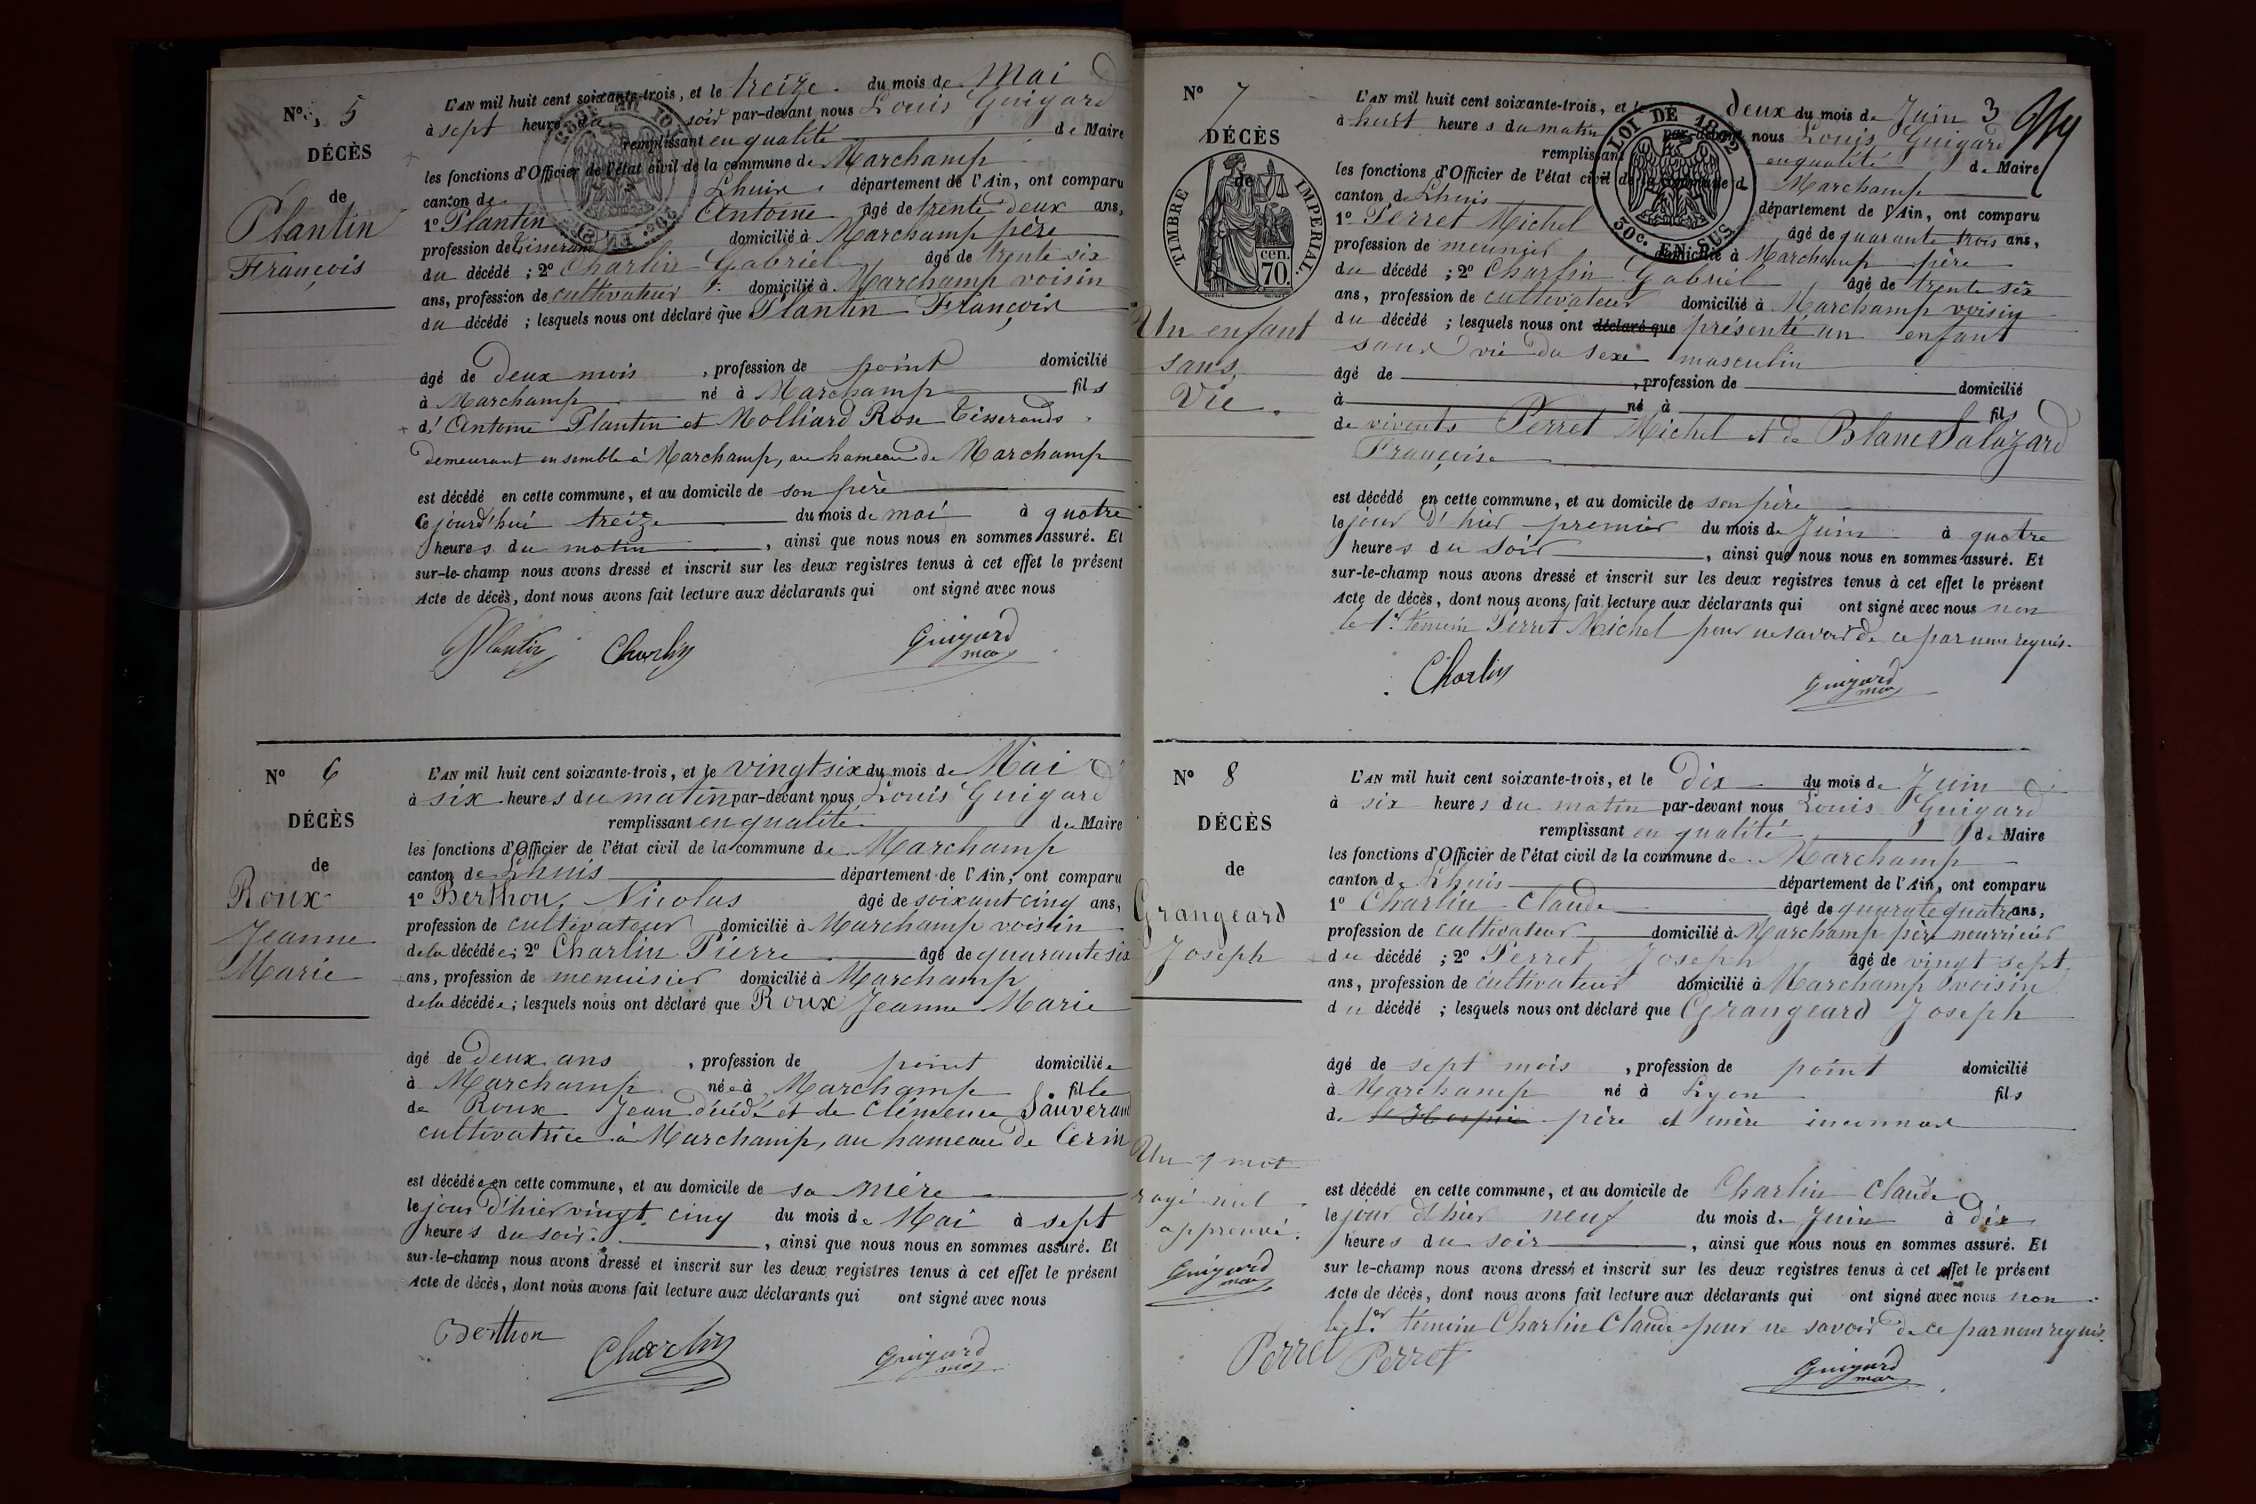 N° 5
DÉCÈS
de
Plantin
François
L'AN mil huit cent soixante-trois, et le treize du mois de Mai
à sept heures du soir par-devant nous Louis Guigard
remplissant en qualité de Maire
les fonctions d'Officier de l'état civil de la commune de Marchamp
canton de Lhuis département de l'Ain, ont comparu
1° Plantin Antoine âgé de trente deux ans,
profession de Tisserand domicilié à Marchamp père
du décédé ; 2° Charlin Gabriel âgé de trente six
ans, profession de cultivateur domicilié à Marchamp voisin
du décédé ; lesquels nous ont déclaré que Plantin François
âgé de deux mois , profession de point domicilié
à Marchamp né à Marchamp fils
d'Antoine Plantin et Molliard Rose Tisserands
demeurant ensemble à Marchamp, au hameau de Marchamp
est décédé en cette commune, et au domicile de son père
Ce jourd'hui treize du mois de mai à quatre
heures du matin , ainsi que nous nous en sommes assuré. Et
sur-le-champ nous avons dressé et inscrit sur les deux registres tenus à cet effet le présent
Acte de décès, dont nous avons fait lecture aux déclarants qui ont signé avec nous
Plantin Charlin Guigard
N° 6
DÉCÈS
de
Roux
Jeanne
Marie
L'AN mil huit cent soixante-trois, et le vingt six du mois de Mai
à six heures du matin par-devant nous Louis Guigard
remplissant en qualité de Maire
les fonctions d'Officier de l'état civil de la commune de Marchamp
canton de Lhuis département de l'Ain, ont comparu
1° Berthon, Nicolas âgé de soixant cinq ans,
profession de cultivateur domicilié à Marchamp voisin
de la décédée; 2° Charlin Pierre âgé de quarante six
ans, profession de menuisier domicilié à Marchamp
de la décédée; lesquels nous ont déclaré que Roux Jeanne Marie
âgé de deux ans , profession de point domiciliée
à Marchamp née à Marchamp fille
de Roux Jean décédé et de Clémence Sauverand
cultivatrice à Marchamp, au hameau de Cerin
est décédée en cette commune, et au domicile de sa mère
le jour d'hier vingt cinq du mois de Mai à sept
heures du soir , ainsi que nous nous en sommes assuré. Et
sur-le-champ nous avons dressé et inscrit sur les deux registres tenus à cet effet le présent
Acte de décès, dont nous avons fait lecture aux déclarants qui ont signé avec nous
Berthon Charlin Guigard
N° 7
DÉCÈS
de
TIMBRE IMPÉRIAL.
cen. 70.
Un enfant
sans
Vie.
LOI DE 1862
30c. EN SUS
3
L'AN mil huit cent soixante-trois, et le deux du mois de Juin
à huit heures du matin par-devant nous Louis Guigard
remplissant en qualité de Maire
les fonctions d'Officier de l'état civil de la commune d Marchamp
canton de Lhuis département de l'Ain, ont comparu
1° Perret Michel âgé de quarante trois ans,
profession de meunier domicilié à Marchamp père
du décédé ; 2° Charlin Gabriel âgé de trente six
ans, profession de cultivateur domicilié à Marchamp voisin
du décédé ; lesquels nous ont déclaré que présenté un enfant
sans vie du sexe masculin
âgé de , profession de domicilié
à né à fils
de vivants Perret Michel et de Blanc Salazard
Françoise
est décédé en cette commune, et au domicile de son père
le jour d'hier premier du mois de Juin à quatre
heures du soir , ainsi que nous nous en sommes assuré. Et
sur-le-champ nous avons dressé et inscrit sur les deux registres tenus à cet effet le présent
Acte de décès, dont nous avons fait lecture aux déclarants qui ont signé avec nous non
le 1er témoin Perret Michel pour ne savoir de ce par nous requis.
Charlin Guigard
N° 8
DÉCÈS
de
Grangeard
Joseph
L'AN mil huit cent soixante-trois, et le dix du mois de Juin
à six heures du matin par-devant nous Louis Guigard
remplissant en qualité de Maire
les fonctions d'Officier de l'état civil de la commune de Marchamp
canton de Lhuis département de l'Ain, ont comparu
1° Charlin Claude âgé de quarate quatre ans,
profession de cultivateur domicilié à Marchamp père nourricier
du décédé ; 2° Perret Joseph âgé de vingt sept
ans, profession de cultivateur domicilié à Marchamp voisin
du décédé ; lesquels nous ont déclaré que Grangeard Joseph
âgé de sept mois , profession de point domicilié
à Marchamp né à Lyon fils
de l'Hospice père et mère inconnus
est décédé en cette commune, et au domicile de Charlin Claude
le jour d'hier neuf du mois de Juin à dix
heures du soir , ainsi que nous nous en sommes assuré. Et
sur le-champ nous avons dressé et inscrit sur les deux registres tenus à cet effet le présent
Acte de décès, dont nous avons fait lecture aux déclarants qui ont signé avec nous non
le 1er témoin Charlin Claude pour ne savoir de ce par nous requis.
Un mot
rayé nul
approuvé.
Guigard
Perret Perret Guigard